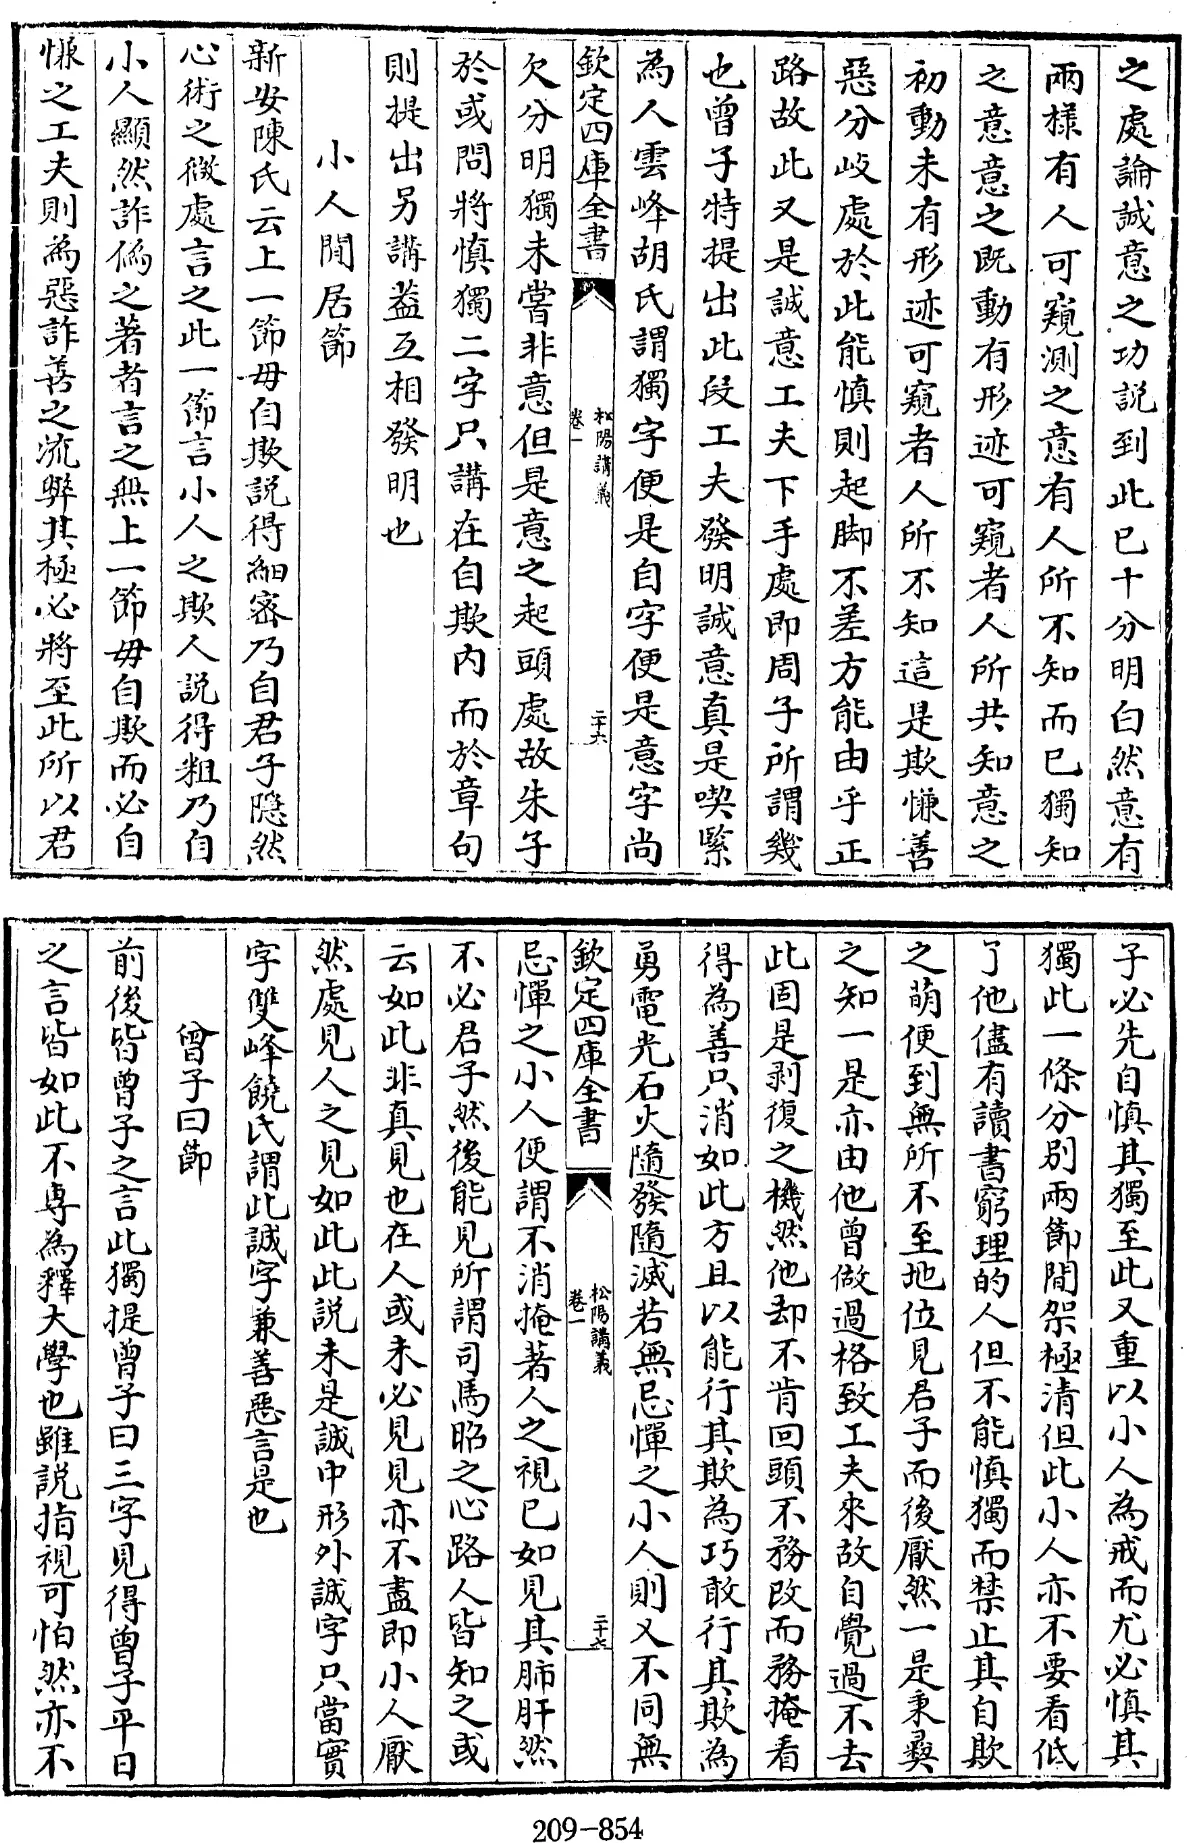 之處論誠意之功説到此已十分明白然意有
兩様有人可窺測之意有人所不知而已獨知
之意意之既動有形迹可窺者人所共知意之
初動未有形迹可窺者人所不知這是欺慊善
惡分岐處於此能慎則起脚不差方能由乎正
路故此又是誠意工夫下手處即周子所謂幾
也曾子特提出此段工夫發明誠意真是喫緊
為人雲峰胡氏謂獨字便是自字便是意字尚
欽定四庫全書
松陽講義
卷一
二十六
欠分明獨未嘗非意但是意之起頭處故朱子
於或問將慎獨二字只講在自欺内而於章句
則提出另講葢互相發明也
小人閒居節
新安陳氏云上一節毋自欺説得細宻乃自君子隠然
心術之微處言之此一節言小人之欺人説得粗乃自
小人顯然詐偽之著者言之無上一節毋自欺而必自
慊之工夫則為惡詐善之流弊其極必將至此所以君
子必先自慎其獨至此又重以小人為戒而尤必慎其
獨此一條分别兩節間架極清但此小人亦不要看低
了他儘有讀書窮理的人但不能慎獨而禁止其自欺
之萌便到無所不至地位見君子而後厭然一是秉彛
之知一是亦由他曾做過格致工夫來故自覺過不去
此固是剥復之機然他却不肯回頭不務改而務掩看
得為善只消如此方且以能行其欺為巧敢行其欺為
勇電光石火隨發隨滅若無忌憚之小人則又不同無
欽定四庫全書
松陽講義
卷一
二十七
忌憚之小人便謂不消掩著人之視已如見其肺肝然
不必君子然後能見所謂司馬昭之心路人皆知之或
云如此非真見也在人或未必見見亦不盡即小人厭
然處見人之見如此此説未是誠中形外誠字只當實
字雙峰饒氏謂此誠字兼善惡言是也
曾子曰節
前後皆曾子之言此獨提曾子曰三字見得曾子平日
之言皆如此不專為釋大學也雖説指視可怕然亦不
209-854